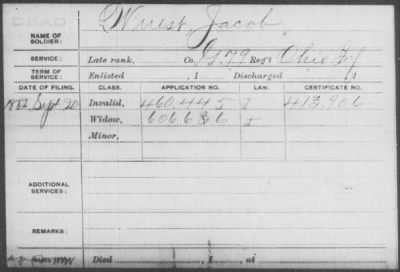 DEAD
Wuest, Jacob
NAME OF
SOLDIER:
SERVICE: Late rank, Co. G. 79 Reg't Ohio Inf
TERM OF
SERVICE: Enlisted , 1 Discharged , 1
DATE OF FILING. CLASS. APPLICATION NO. LAW. CERTIFICATE NO.
Sept 20 Invalid, 460.445 J 413.906
Widow, 606636 J
Minor,
ADDITIONAL
SERVICES:
REMARKS:
Died , 1 , at